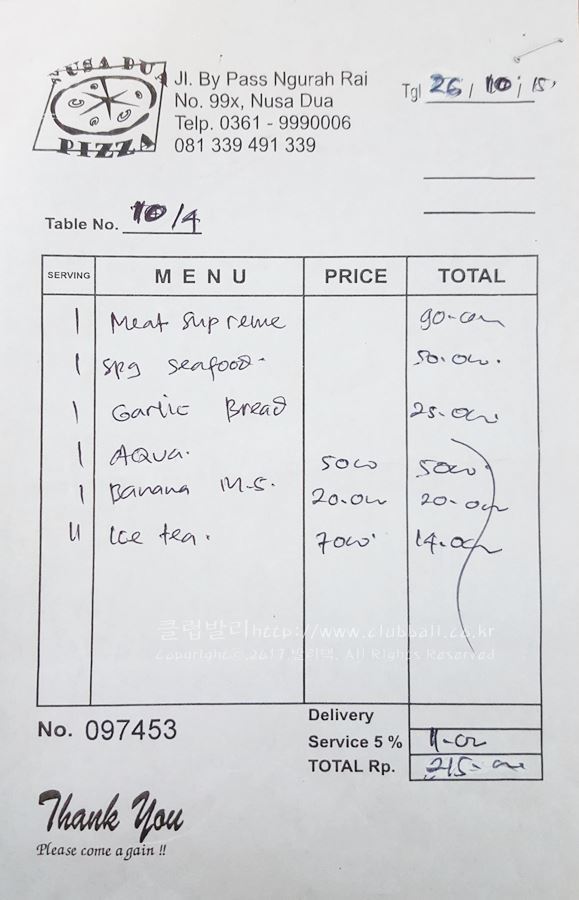 NUSA DUA
PIZZA
Jl. By Pass Ngurah Rai
No. 99x, Nusa Dua
Telp. 0361 - 9990006
081 339 491 339
Tgl 26 / 10 / 15'
Table No. 10/4
SERVING MENU PRICE TOTAL
1 Meat Supreme 90.000
1 spg seafood. 50.000.
1 Garlic Bread 25.000
1 AQUA. 5000 5000
1 Banana M.S. 20.000 20.000
11 Ice tea. 7000 14.000
클럽발리 http://www.clubbali.co.kr
Copyright©, 2017 발리댁. All Rights Reserved
No. 097453
Delivery
Service 5 % 11.000
TOTAL Rp. 215.000
Thank You
Please come again !!